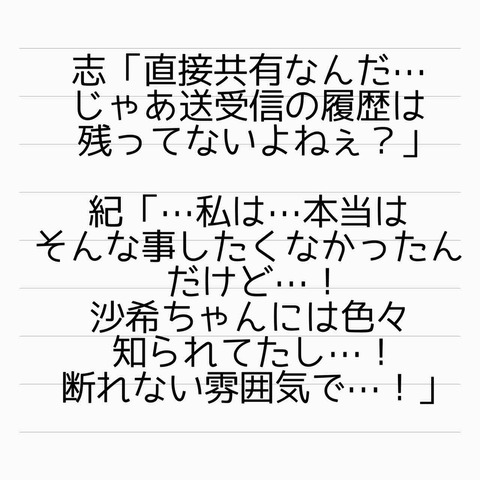 志「直接共有なんだ…
じゃあ送受信の履歴は
残ってないよねぇ？」
紀「…私は…本当は
そんな事したくなかったん
だけど…！
沙希ちゃんには色々
知られてたし…！
断れない雰囲気で…！」